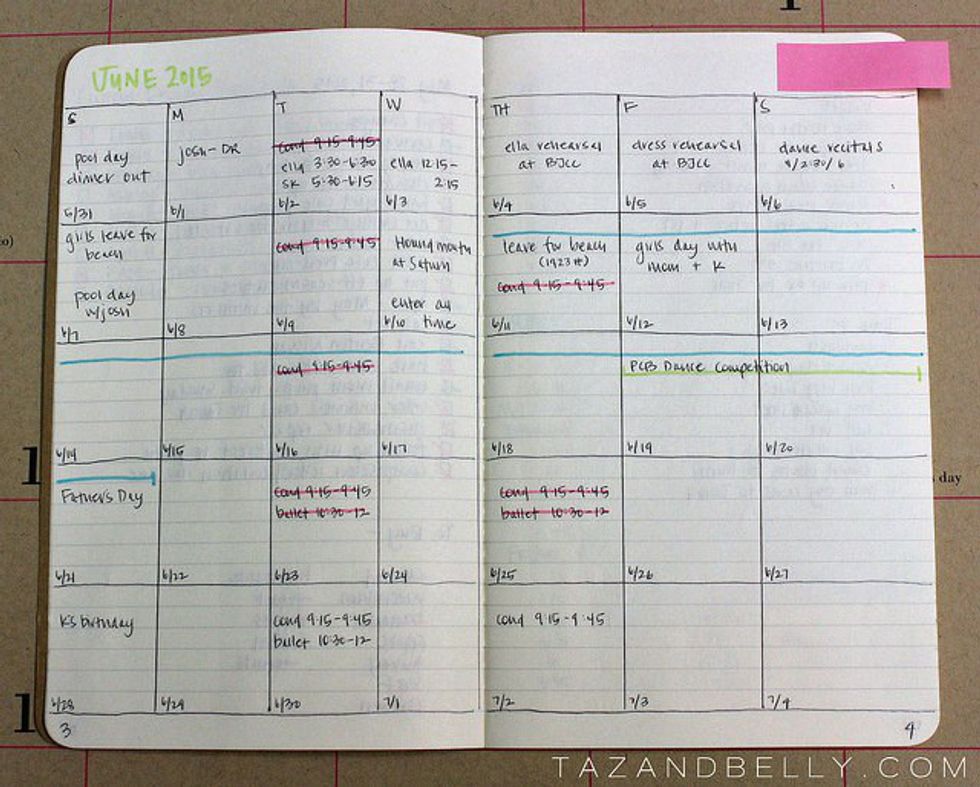 JUNE 2015
S M T W TH F S
pool day
dinner out
5/31
josh - DR
6/1
cond 9:15-9:45
ella 3:30-6:30
SK 5:30-6:15
6/2
ella 12:15-
2:15
6/3
ella rehearsal
at BJCC
6/4
dress rehearsal
at BJCC
6/5
dance recitals
6/6
girls leave for
beach
pool day
w/josh
6/7
6/8
cond 9:15-9:45
6/9
Houndmouth
at Saturn
enter au
time
6/10
leave for beach
cond 9:15-9:45
6/11
girls day with
mom + K
6/12
6/13
6/14
6/15
cond 9:15-9:45
6/16
6/17
6/18
PCB Dance Competition
6/19
6/20
Father's Day
6/21
6/22
cond 9:15-9:45
ballet 10:30-12
6/23
6/24
cond 9:15-9:45
ballet 10:30-12
6/25
6/26
6/27
K's birthday
6/28
6/29
cond 9:15-9:45
ballet 10:30-12
6/30
7/1
cond 9:15-9:45
7/2
7/3
7/4
3
4
1
1
day
TAZANDBELLY.COM